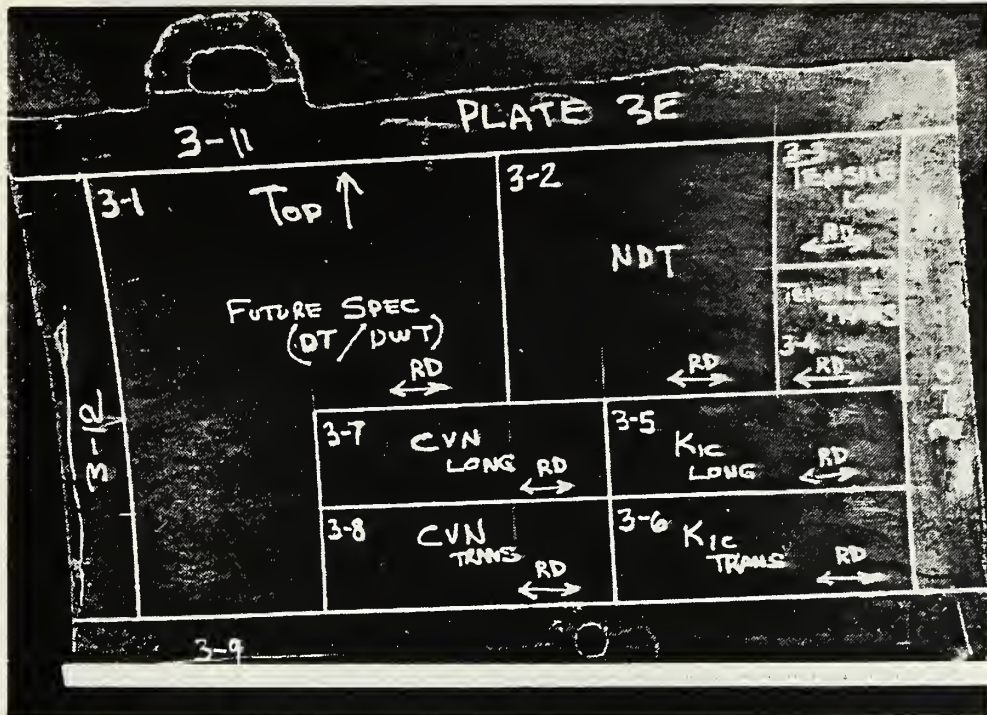 PLATE 3E
3-11
3-1
TOP
FUTURE SPEC
(DT/DWT)
RD
3-2
NDT
RD
3-3
TENSILE
LONG
RD
TENSILE
TRANS
3-4
RD
3-7
CVN
LONG
RD
3-5
KIC
LONG
RD
3-8
CVN
TRANS
RD
3-6
KIC
TRANS
RD
3-12
3-10
3-9